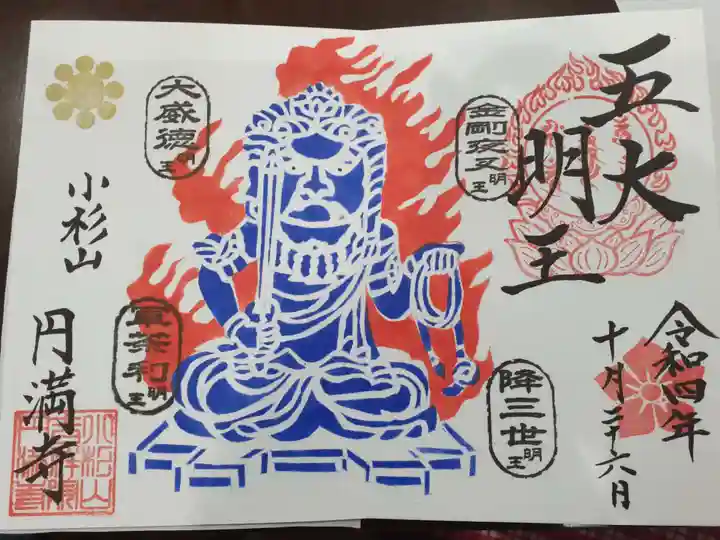 五大
明王
令和四年
十月二十六月
金剛夜叉明王
降三世明王
大威徳明王
軍荼利明王
小杉山
円満寺
小杉山